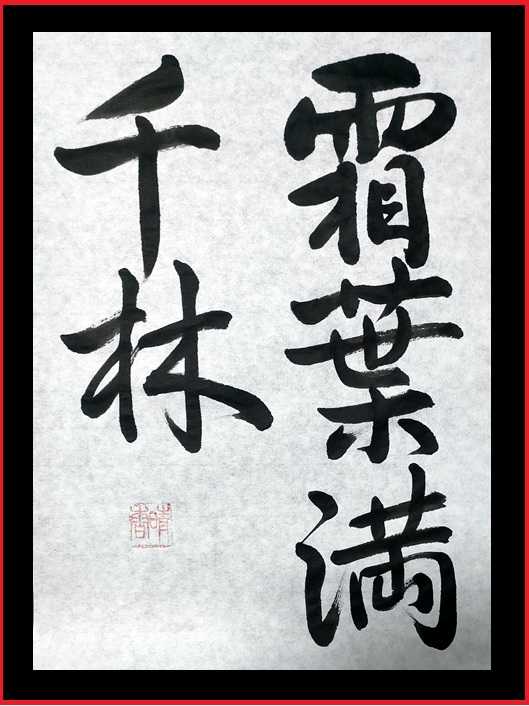 霜葉満
千林